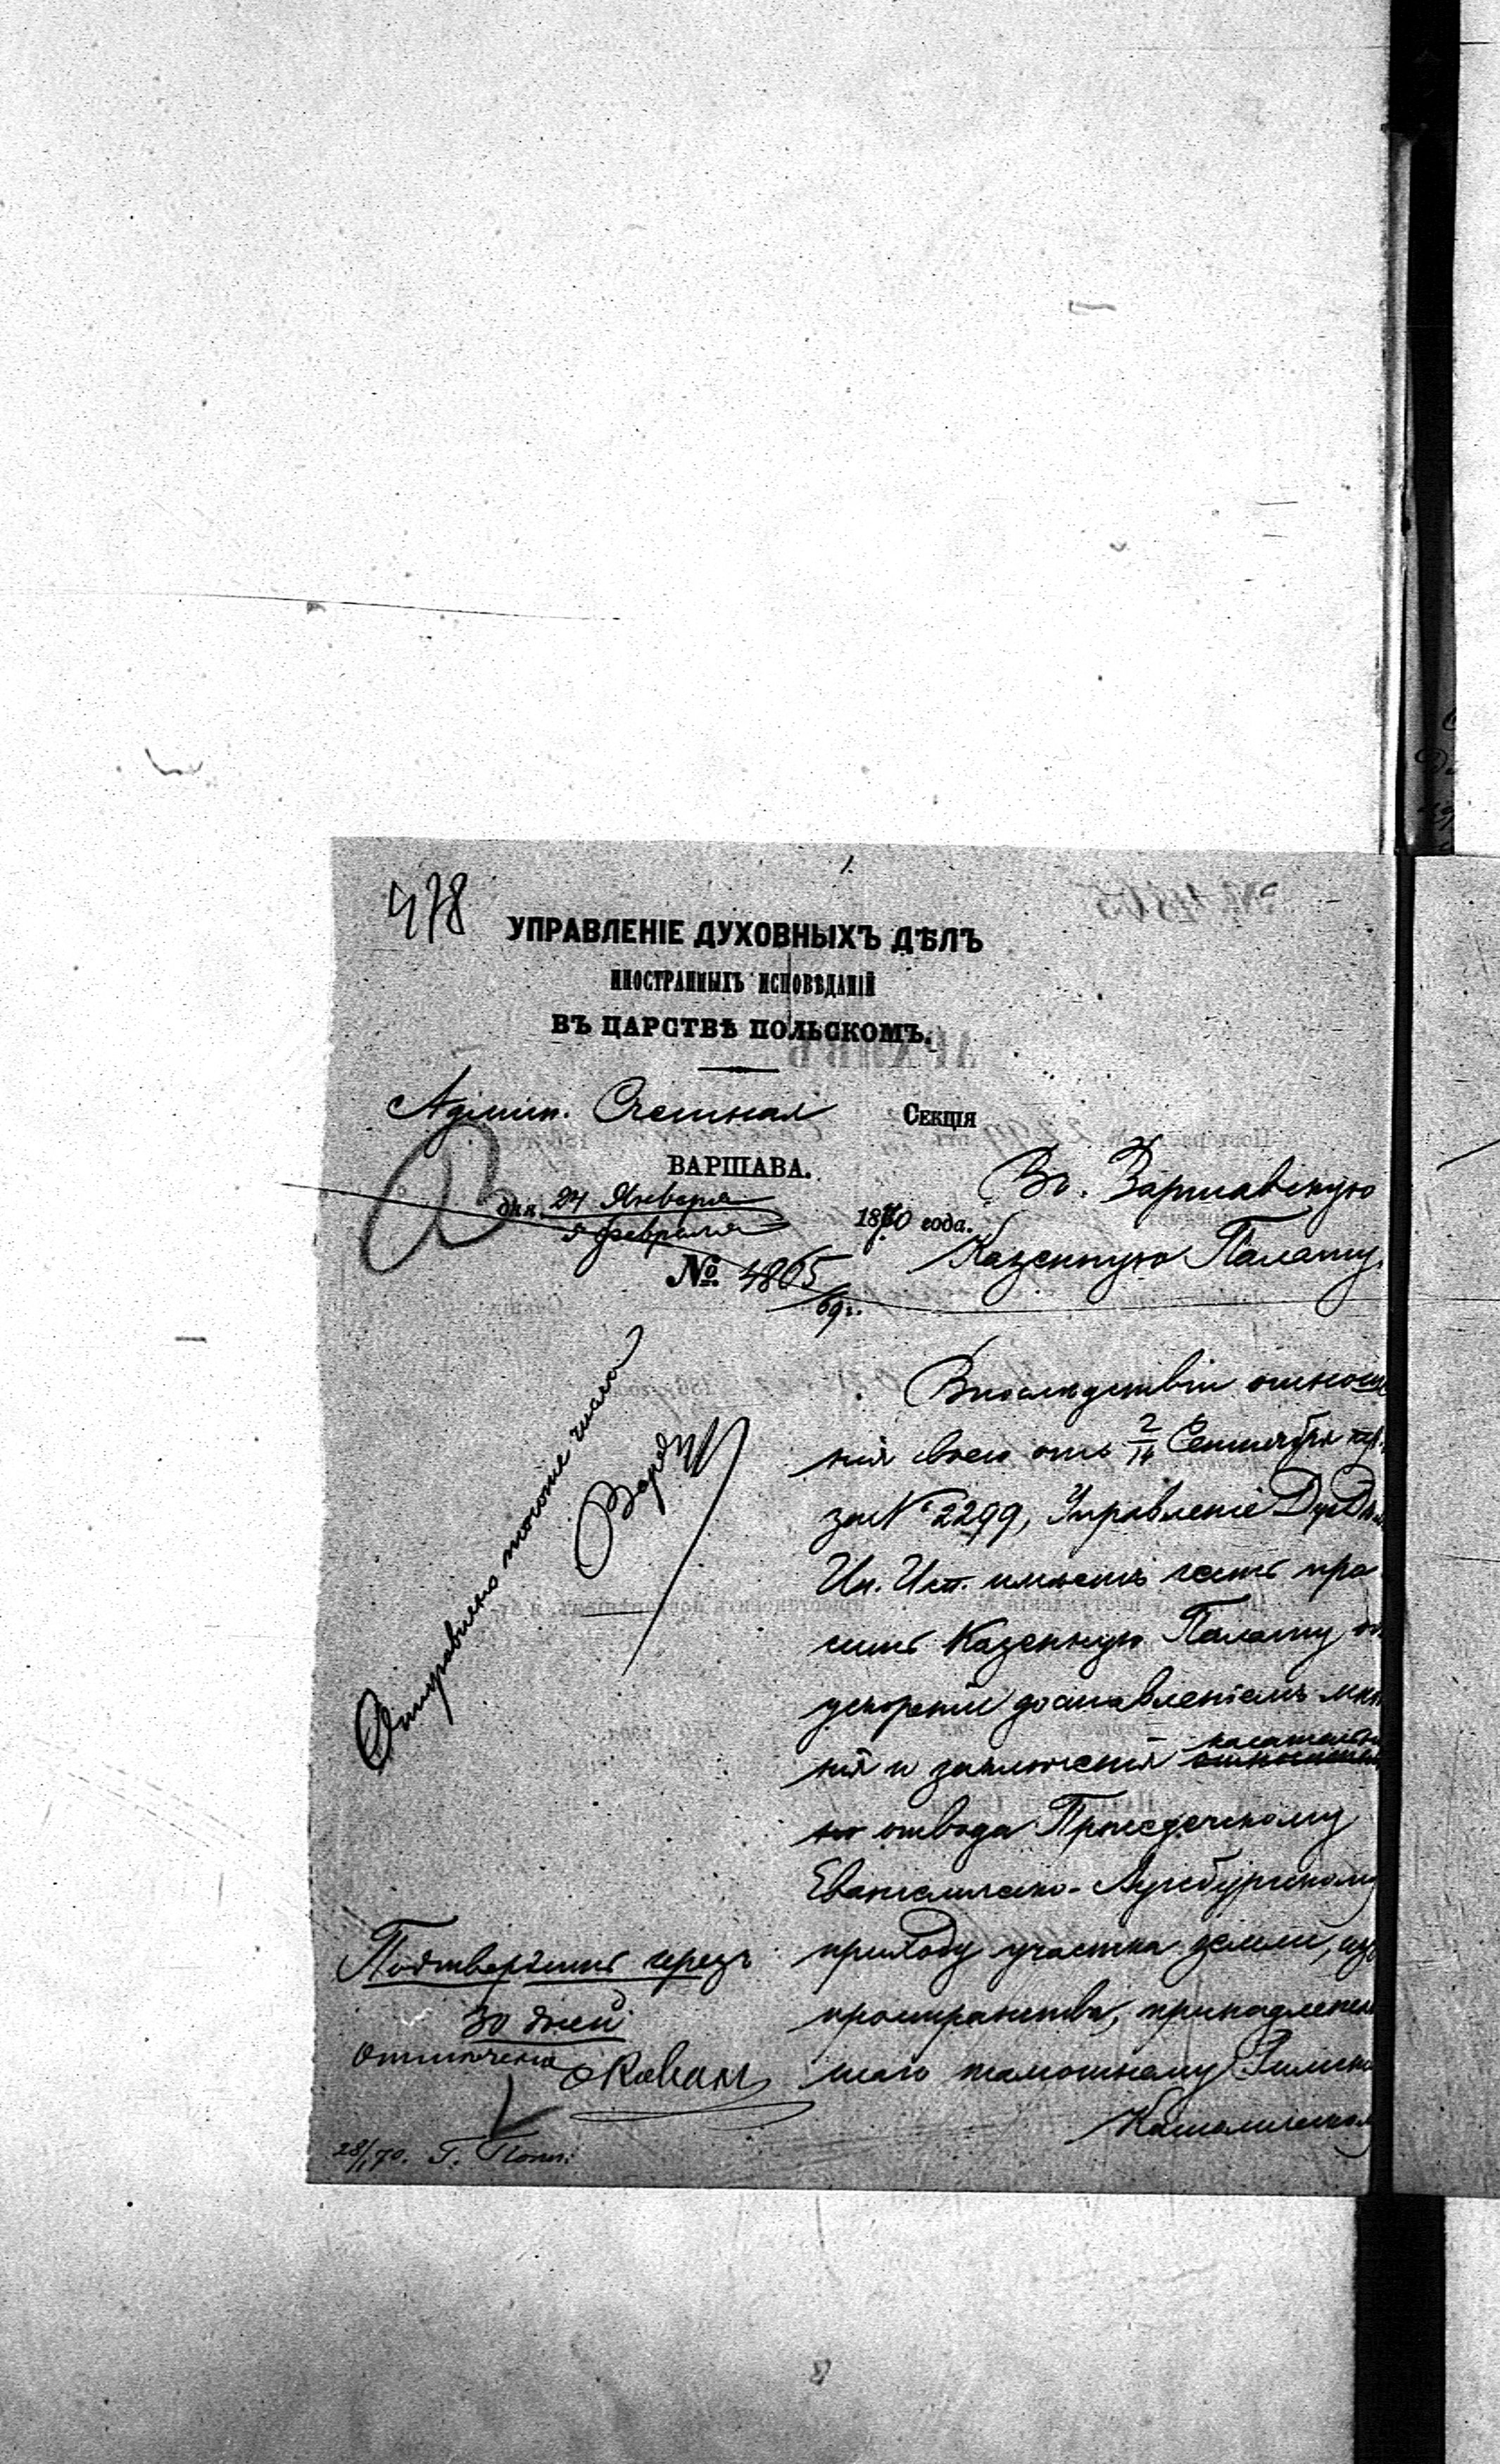 1.
478
УПРАВЛЕНІЕ ДУХОВНЫХЪ ДѢЛЪ
ИНОСТРАННЫХЪ ИСПОВѢДАНІЙ
ВЪ ЦАРСТВѢ ПОЛЬСКОМЪ.
Админ. Счетная Секція
ВАРШАВА.
дня 24 Января
5 февраля
1870 года.
№ 4865/69г.
Въ Варшавскую
Казенную Палату.
Отправлено тогоже числа
Впослѣдствіи отноше
нія своего отъ 2/14 Сентября
за № 2299, Управленіе Дух Дѣл
Ин. Исп. имѣетъ честь про
сить Казенную Палату объ
ускореніи доставленіемъ мнѣ
нія и заключенія касательно
но отвода Пржедечскому
Евангелическо-Аугсбургскому
приходу участка земли, изъ
пространства, принадлежав
шаго тамошнему Римско
Католическому
Подтвердить черезъ
30 дней
Отмѣчено
28/1 70. Г.